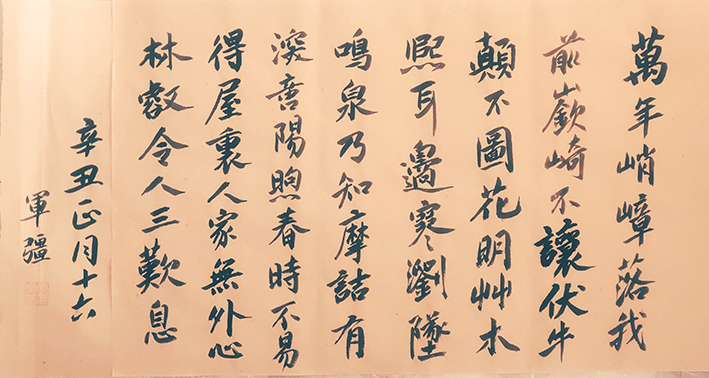 萬年峭嶂落我
前嶔崎不讓伏牛
顛不圖花明艸木
熙耳邊寒瀏墜
鳴泉乃知摩詰有
深意陽煦春時不易
得屋裏人家無外心
林叡令人三歎息
辛丑正月十六
軍疆